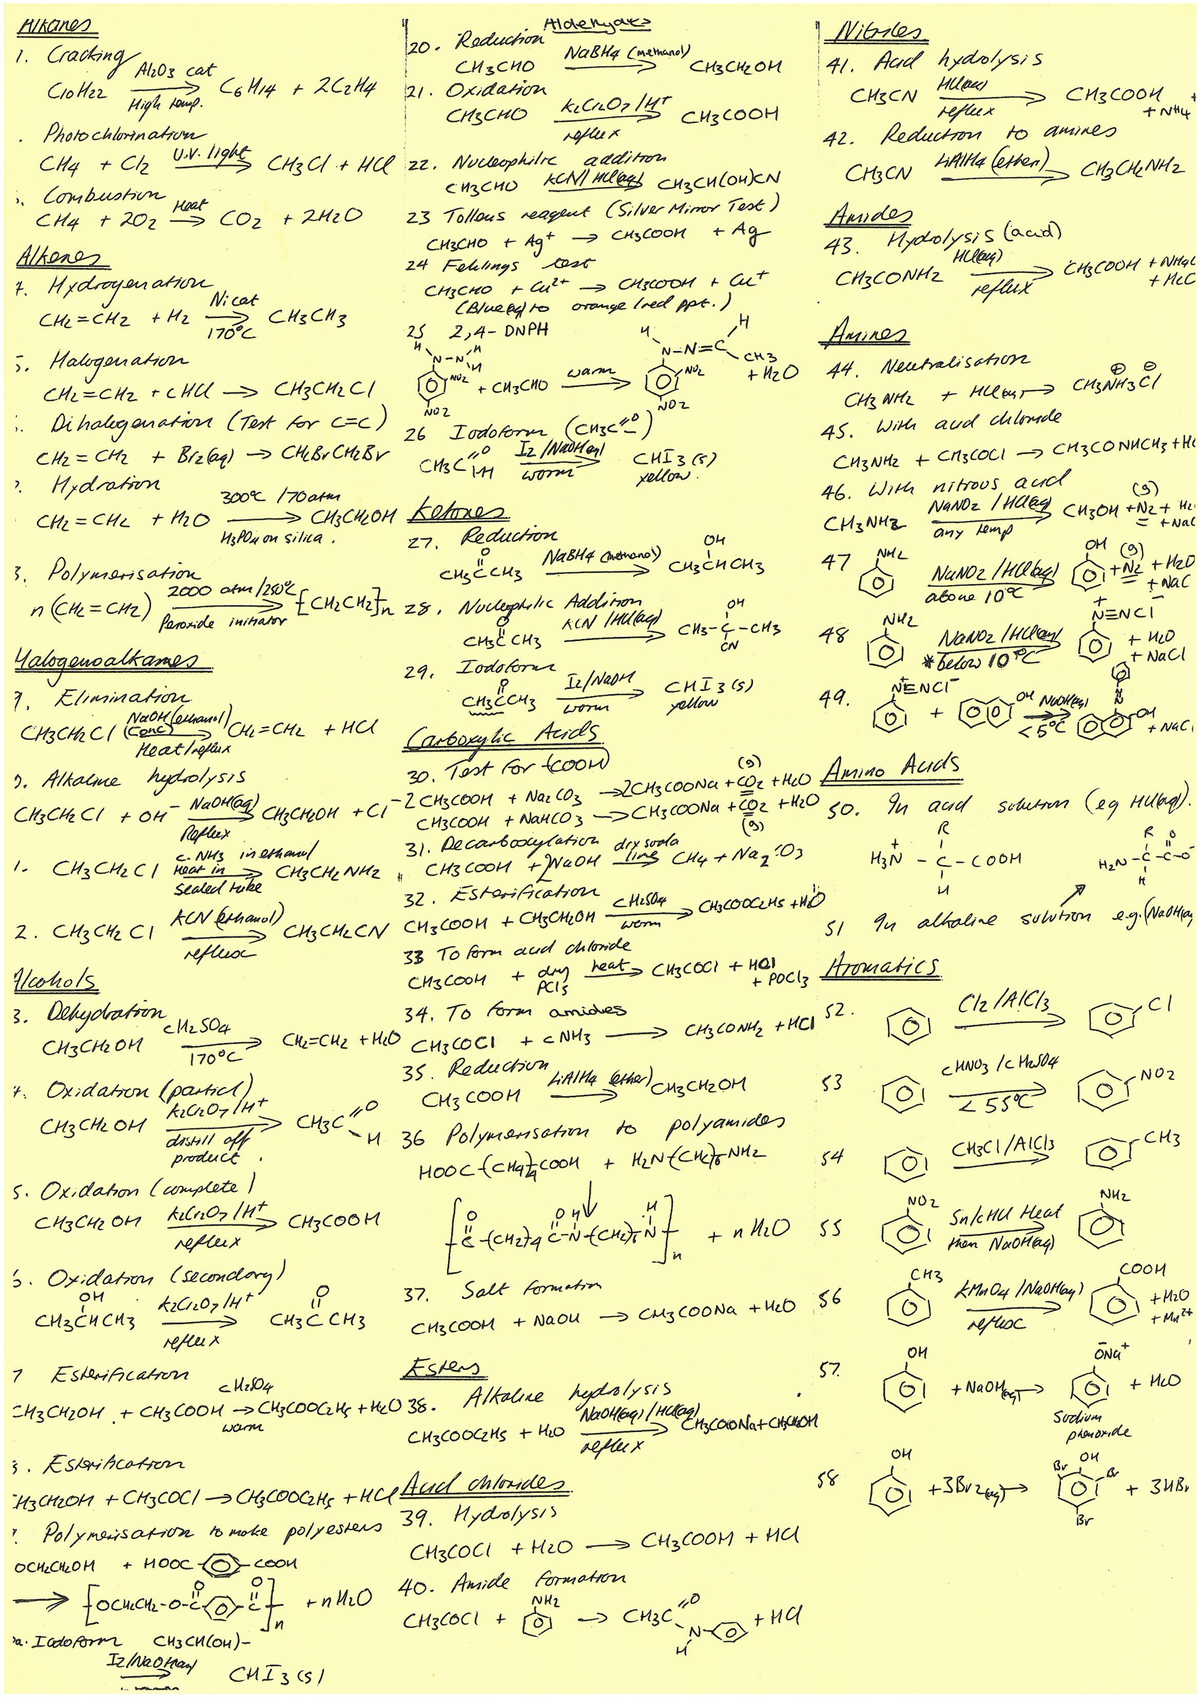 Alkanes
1. Cracking
C10H22 Al2O3 cat → High temp. C6H14 + 2C2H4
. Photochlorination
CH4 + Cl2 U.V. light → CH3Cl + HCl
Combustion
CH4 + 2O2 Heat → CO2 + 2H2O
Alkenes
Hydrogenation
CH2=CH2 + H2 Ni cat → 170°C CH3CH3
Halogenation
CH2=CH2 + cHCl → CH3CH2Cl
Dihalogenation (Test for C=C)
CH2=CH2 + Br2(aq) → CH2BrCH2Br
Hydration
CH2=CH2 + H2O 300°C / 70 atm → H3PO4 on silica. CH3CH2OH
Polymerisation
n(CH2=CH2) 2000 atm / 250°C → Peroxide initiator [CH2CH2]n
Halogenoalkanes
Elimination
CH3CH2Cl NaOH (ethanol) (conc) → Heat/reflux CH2=CH2 + HCl
Alkaline hydrolysis
CH3CH2Cl + OH⁻ NaOH(aq) → Reflux CH3CH2OH + Cl⁻
1. CH3CH2Cl c. NH3 in ethanol → Heat in sealed tube CH3CH2NH2
2. CH3CH2Cl KCN (ethanol) → reflux CH3CH2CN
Alcohols
3. Dehydration
CH3CH2OH cH2SO4 → 170°C CH2=CH2 + H2O
4. Oxidation (partial)
CH3CH2OH K2Cr2O7/H+ → distill off product. CH3C=O H
5. Oxidation (complete)
CH3CH2OH K2Cr2O7/H+ → reflux CH3COOH
6. Oxidation (secondary)
OH
CH3CHCH3 K2Cr2O7/H+ → reflux O CH3CCH3
7 Esterification
CH3CH2OH + CH3COOH cH2SO4 → warm CH3COOC2H5 + H2O
Esterification
CH3CH2OH + CH3COCl → CH3COOC2H5 + HCl
Polymerisation to make polyesters
OCH2CH2OH + HOOC COOH
→ [OCH2CH2-O-C C]n O O + nH2O
Iodoform CH3CH(OH)-
I2/NaOH(aq) → CHI3(s)
Aldehydes
20. Reduction
CH3CHO NaBH4 (methanol) → CH3CH2OH
21. Oxidation
CH3CHO K2Cr2O7/H+ → reflux CH3COOH
22. Nucleophilic addition
CH3CHO KCN/HCl(aq) → CH3CH(OH)CN
23 Tollens reagent (Silver Mirror Test)
CH3CHO + Ag+ → CH3COOH + Ag
24 Fehlings test
CH3CHO + Cu2+ → CH3COOH + Cu+
(Blue(aq) to orange/red ppt.)
25 2,4-DNPH
H N-N H H NO2 NO2 + CH3CHO warm → H N-N=C H CH3 NO2 NO2 + H2O
26 Iodoform (CH3C=O)
CH3C=O H I2/NaOH(aq) → warm CHI3(s) yellow.
Ketones
27. Reduction
O CH3CCH3 NaBH4 (methanol) → OH CH3CHCH3
28. Nucleophilic Addition
O CH3CCH3 KCN/HCl(aq) → OH CH3-C-CH3 CN
29. Iodoform
O CH3CCH3 I2/NaOH → warm CHI3(s) yellow
Carboxylic Acids
30. Test for (COOH)
2CH3COOH + Na2CO3 → 2CH3COONa + CO2 (g) + H2O
CH3COOH + NaHCO3 → CH3COONa + CO2 (g) + H2O
31. Decarboxylation
CH3COOH + 2NaOH dry soda lime → CH4 + Na2CO3
32. Esterification
CH3COOH + CH3CH2OH cH2SO4 → warm CH3COOC2H5 + H2O
33 To form acid chloride
CH3COOH + dry PCl5 heat → CH3COCl + HCl + POCl3
34. To form amides
CH3COCl + cNH3 → CH3CONH2 + HCl
35. Reduction
CH3COOH LiAlH4 (ether) → CH3CH2OH
36 Polymerisation to polyamides
HOOC-(CH2)4COOH + H2N-(CH2)6NH2
↓
[O C-(CH2)4 O C-N H-(CH2)6 N H]n + nH2O
37. Salt formation
CH3COOH + NaOH → CH3COONa + H2O
Esters
38. Alkaline hydrolysis
CH3COOC2H5 + H2O NaOH(aq)/HCl(aq) → reflux CH3COONa + CH3CH2OH
Acid chlorides
39. Hydrolysis
CH3COCl + H2O → CH3COOH + HCl
40. Amide formation
CH3COCl + NH2 → CH3C=O N H + HCl
Nitriles
41. Acid hydrolysis
CH3CN HCl(aq) → reflux CH3COOH + NH4
42. Reduction to amines
CH3CN LiAlH4 (ether) → CH3CH2NH2
Amides
43. Hydrolysis (acid)
CH3CONH2 HCl(aq) → reflux CH3COOH + NH4C
Amines
44. Neutralisation
CH3NH2 + HCl(aq) → CH3NH3 ⊕ Cl ⊖
45. With acid chloride
CH3NH2 + CH3COCl → CH3CONHCH3 + HC
46. With nitrous acid
CH3NH2 NaNO2/HCl(aq) → any temp CH3OH + N2 (g) + H2 + NaC
47 NH2 NaNO2/HCl(aq) → above 10°C OH + N2 (g) + H2O + NaC
48 NH2 NaNO2/HCl(aq) → *below 10°C +N≡NCl⁻ + H2O + NaCl
49. +N≡NCl⁻ + OH NaOH(aq) → <5°C N=N OH + NaC
Amino Acids
50. In acid solution (eg HCl(aq)).
H3N+ - C - COOH R H
H2N - C - C - O⁻ R O H
51 In alkaline solution e.g. (NaOH(aq)
Aromatics
52. Cl2/AlCl3 → Cl
53 cHNO3/cH2SO4 → <55°C NO2
54 CH3Cl/AlCl3 → CH3
55 NO2 Sn/cHCl Heat → then NaOH(aq) NH2
56 CH3 KMnO4/NaOH(aq) → reflux COOH + H2O + Mn2+
57. OH + NaOH(aq) → O⁻Na+ + H2O
Sodium phenoxide
58 OH + 3Br2(aq) → OH Br Br Br + 3HBr